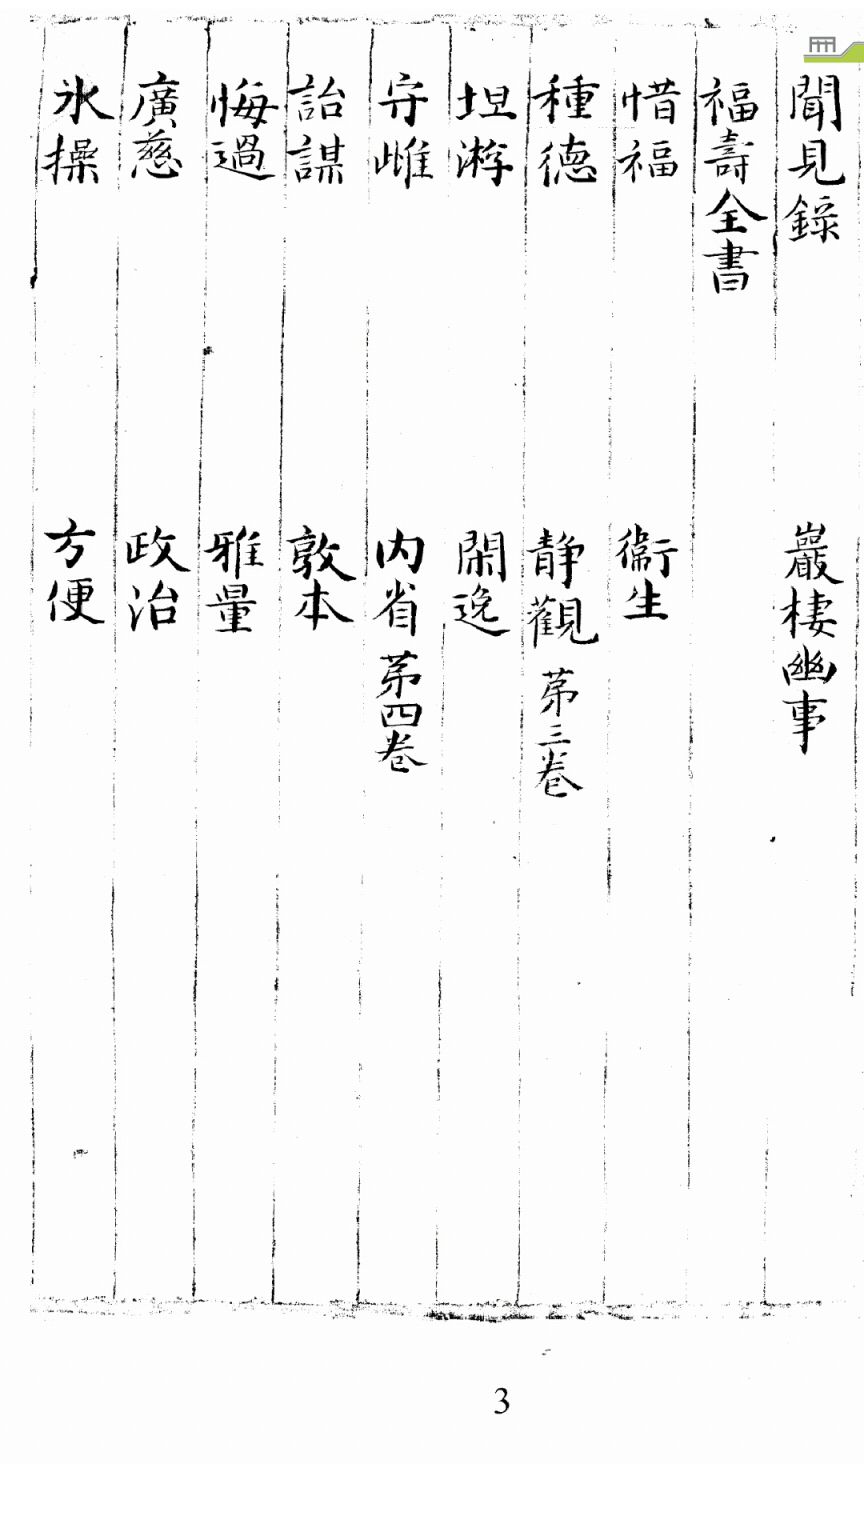 聞見錄 巖棲幽事
福壽全書
惜福 衛生
種德 静觀 苐三卷
坦游 閑逸
守雌 内省 苐四卷
詒謀 敦本
悔過 雅量
廣慈 政治
氷操 方便
3